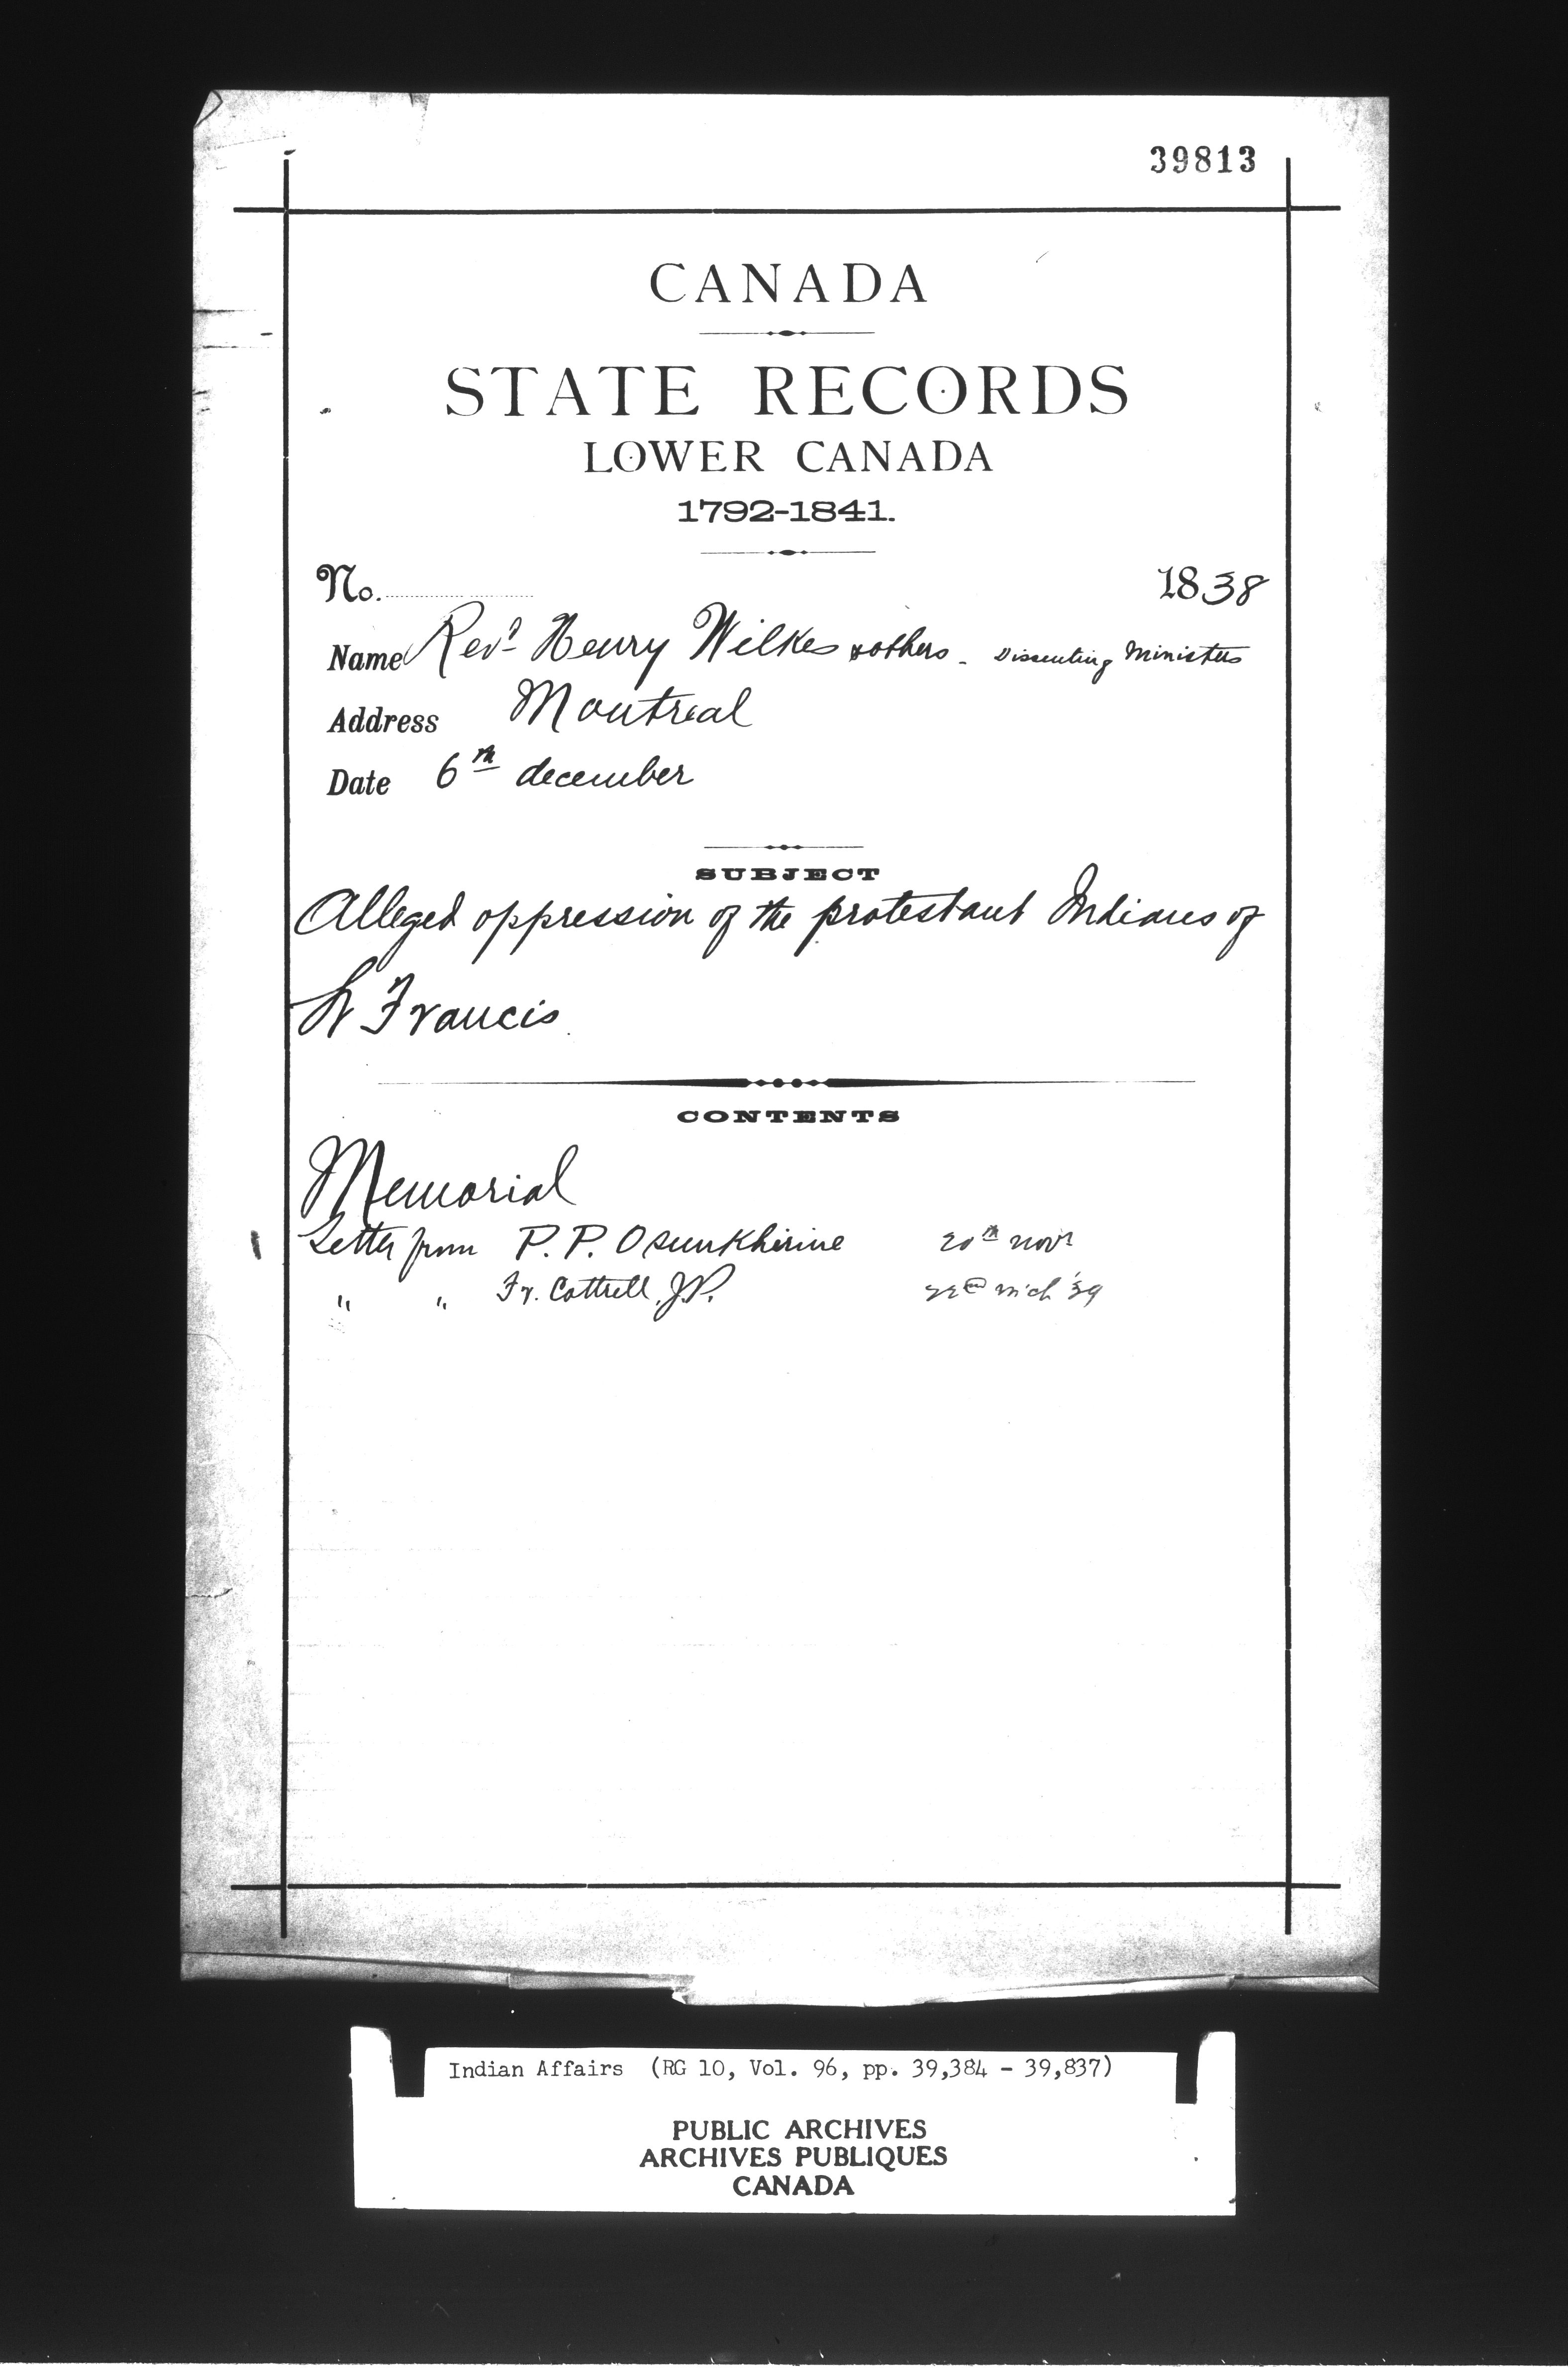 39813
CANADA
STATE RECORDS
LOWER CANADA
1792-1841.
No. 1838
Name Revd Henry Wilkes & others - Dissenting Ministers
Address Montreal
Date 6th december
SUBJECT
Alleged oppression of the protestant Indians of
St Francis
CONTENTS
Memorial
Letter from P. P. Osunkhirine 20th novr
" " Fr. Cottrell, J.P. 22d mch '39
Indian Affairs (RG 10, Vol. 96, pp. 39,384 - 39,837)
PUBLIC ARCHIVES
ARCHIVES PUBLIQUES
CANADA